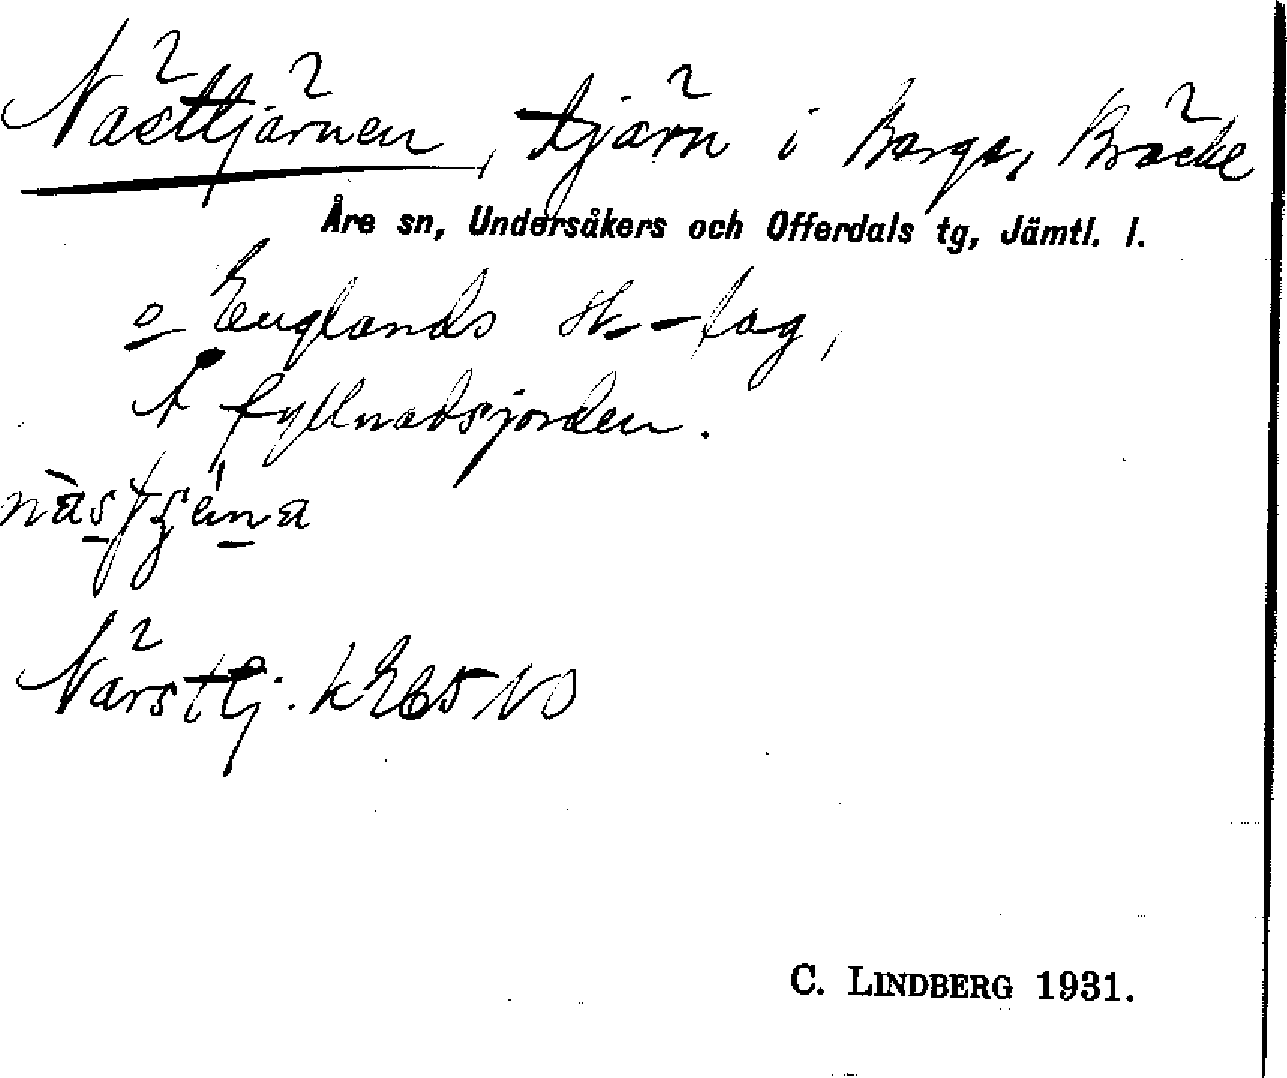 Nästtjärnen, tjärn i Berge, Bräcke
Åre sn, Undersåkers och Offerdals tg, Jämtl. l.
o Englands sk-lag,
fyllnadsjorden.
Närsttj. k E65 NO
C. LINDBERG 1931.